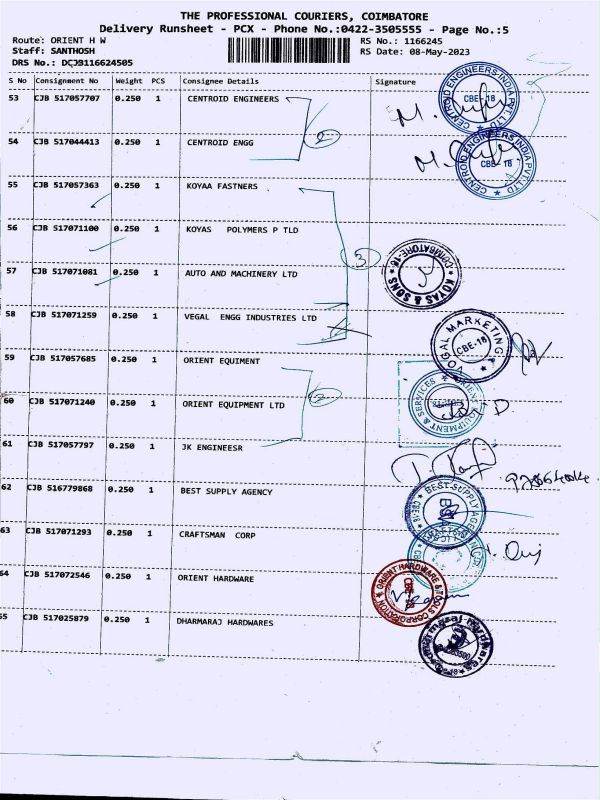 THE PROFESSIONAL COURIERS, COIMBATORE
Delivery Runsheet - PCX - Phone No.:0422-3505555 - Page No.:5
Route: ORIENT H W RS No.: 1166245
Staff: SANTHOSH RS Date: 08-May-2023
DRS No.: DCJB116624505
S No Consignment No Weight PCS Consignee Details Signature
53 CJB 517057707 0.250 1 CENTROID ENGINEERS
CENTROID ENGINEERS INDIA PVT. LTD CBE-18
54 CJB 517044413 0.250 1 CENTROID ENGG
2
CENTROID ENGINEERS INDIA PVT. LTD CBE-18
55 CJB 517057363 0.250 1 KOYAA FASTNERS
56 CJB 517071100 0.250 1 KOYAS POLYMERS P TLD
3
57 CJB 517071081 0.250 1 AUTO AND MACHINERY LTD
KOYAS & SONS COIMBATORE-18
58 CJB 517071259 0.250 1 VEGAL ENGG INDUSTRIES LTD
VOGAL MARKETING CBE-18
59 CJB 517057685 0.250 1 ORIENT EQUIMENT
60 CJB 517071240 0.250 1 ORIENT EQUIPMENT LTD
2
ORIENT EQUIPMENT & SERVICES
61 CJB 517057797 0.250 1 JK ENGINEESR
62 CJB 516779868 0.250 1 BEST SUPPLY AGENCY
BEST SUPPLY AGENCY CBE-18
63 CJB 517071293 0.250 1 CRAFTSMAN CORP
64 CJB 517072546 0.250 1 ORIENT HARDWARE
ORIENT HARDWARE & TOOLS CORPORATION
65 CJB 517025879 0.250 1 DHARMARAJ HARDWARES